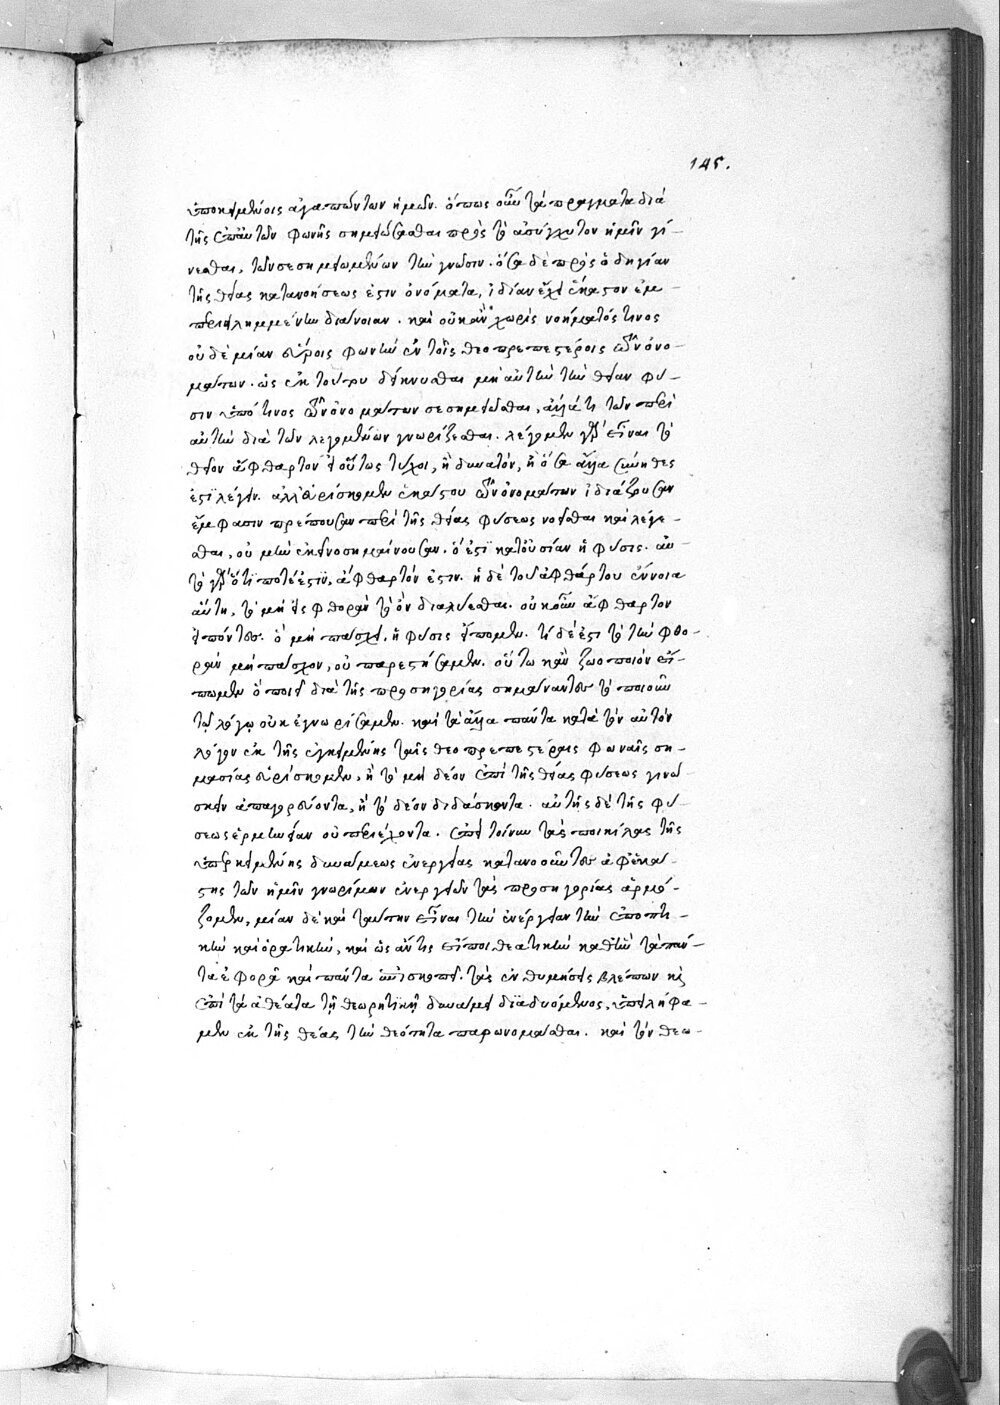 145.
ὑποκειμένοις ἀγαπώντων ἡμῶν. ὅπως οὖν τὰ πράγματα διὰ
τῆς ἐπ' αὐτῶν φωνῆς σημειώσασθαι πρὸς τὸ ἀσύγχυτον ἡμῖν γί-
νεσθαι, τῶν σεσημειωμένων τὴν γνῶσιν. ὅσα δὲ πρὸς ὁδηγίαν
τῆς θείας κατανοήσεως ἐστιν ὀνόματα, ἰδίαν ἔχει ἕκαστον ἐμ-
περιειλημμένην διάνοιαν. καὶ οὐκ ἂν χωρὶς νοήματός τινος
οὐδεμίαν εὕροις φωνὴν ἐν τοῖς θεοπρεπεστέροις τῶν ὀνο-
μάτων. ὡς ἐκ τούτου δείκνυσθαι μὴ αὐτὴν τὴν θείαν φύ-
σιν ὑπό τινος τῶν ὀνομάτων σεσημειῶσθαι, ἀλλά τι τῶν περὶ
αὐτὴν διὰ τῶν λεγομένων γνωρίζεσθαι. λέγομεν γὰρ εἶναι τὸ
θεῖον ἄφθαρτον εἰ οὕτως τύχοι, ἢ δυνατόν, ἢ ὅσα ἄλλα σύνηθες
ἐστὶ λέγειν. ἀλλ' εὑρίσκομεν ἑκάστου τῶν ὀνομάτων ἰδιάζουσαν
ἔμφασιν πρέπουσαν περὶ τῆς θείας φύσεως νοεῖσθαι καὶ λέγε-
σθαι, οὐ μὴν ἐκεῖνο σημαίνουσαν. ὅ ἐστι κατ' οὐσίαν ἡ φύσις. αὐ-
τὸ γὰρ ὅτι ποτέ ἐστιν, ἄφθαρτόν ἐστιν. ἡ δὲ τοῦ ἀφθάρτου ἔννοια
αὕτη, τὸ μὴ εἰς φθορὰν τὸ ὂν διαλύεσθαι. οὐκοῦν ἄφθαρτον
εἰπόντες. ὃ μὴ πάσχει, ἡ φύσις εἴπομεν. τί δέ ἐστι τὸ τὴν φθο-
ρὰν μὴ πάσχον, οὐ παρεστήσαμεν. οὕτω κἂν ζωοποιὸν εἴ-
πωμεν ὃ ποιεῖ διὰ τῆς προσηγορίας σημάναντες τὸ ποιοῦν
τῷ λόγῳ οὐκ ἐγνωρίσαμεν. καὶ τὰ ἄλλα πάντα κατὰ τὸν αὐτὸν
λόγον ἐκ τῆς ἐγκειμένης ταῖς θεοπρεπεστέραις φωναῖς ση-
μασίας εὑρίσκομεν, ἢ τὸ μὴ δέον ἐπὶ τῆς θείας φύσεως γινώ-
σκειν ἀπαγορεύοντα, ἢ τὸ δέον διδάσκοντα. αὐτῆς δὲ τῆς φύ-
σεως ἑρμηνείαν οὐ περιέχοντα. ἐπεὶ τοίνυν τὰς ποικίλας τῆς
ὑπερκειμένης δυνάμεως ἐνεργείας κατανοοῦντες ἀφ' ἑκάσ-
της τῶν ἡμῖν γνωρίμων ἐνεργειῶν τὰς προσηγορίας ἁρμό-
ζομεν, μίαν δὲ καὶ ταύτην εἶναι τὴν ἐνέργειαν τὴν ἐποπτι-
κὴν καὶ ὁρατικήν, καὶ ὡς ἄν τις εἴποι θεατικὴν καθ' ἣν τὰ πάν-
τα ἐφορᾷ καὶ πάντα ἐπισκοπεῖ. τὰς ἐνθυμήσεις βλέπων καὶ
ἐπὶ τὰ ἀθέατα τῇ θεωρητικῇ δυνάμει διαδυόμενος, ὑπειλήφα-
μεν ἐκ τῆς θέας τὴν θεότητα παρωνομάσθαι. καὶ τὸν θεω-